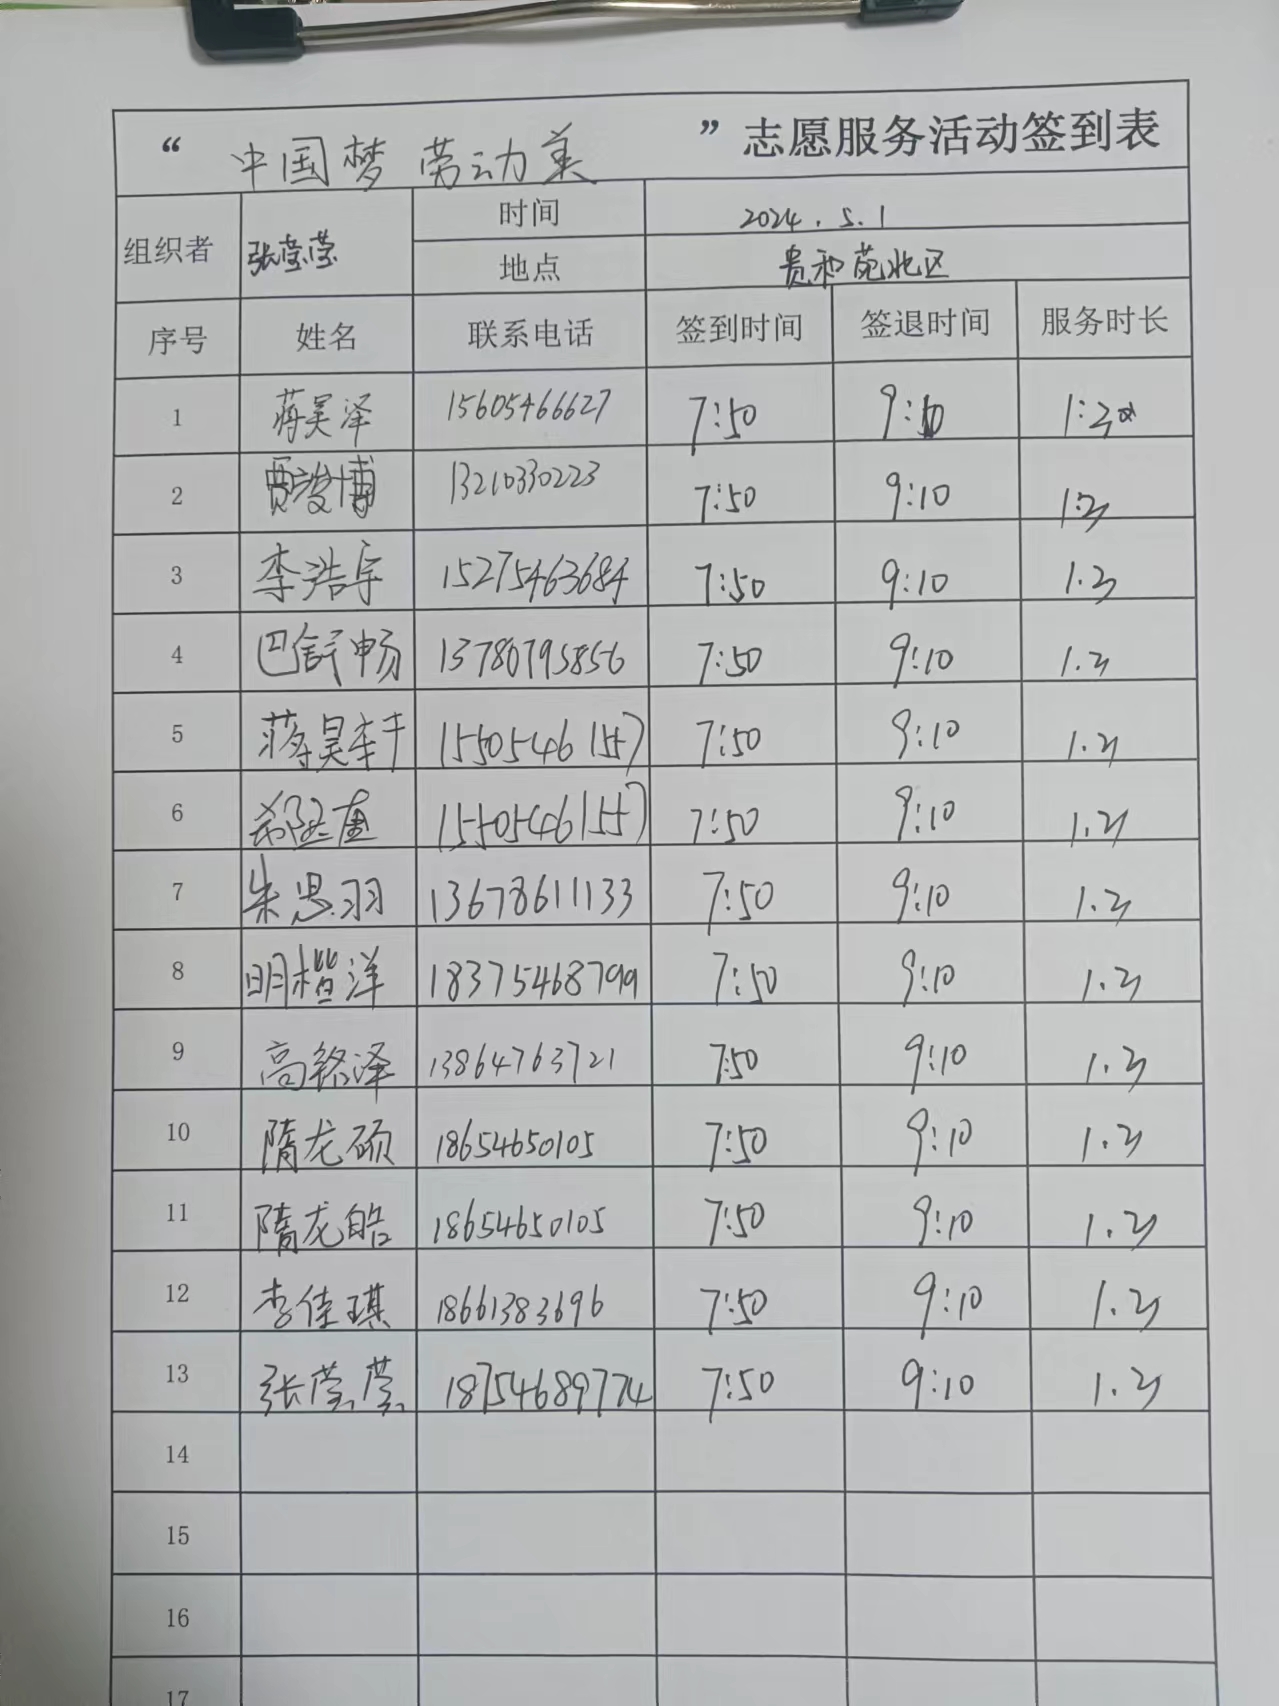 “ 中国梦 劳动美 ”志愿服务活动签到表
组织者 张莹莹 时间 2024.5.1
地点 贵和苑北区
序号 姓名 联系电话 签到时间 签退时间 服务时长
1 蒋昊泽 15605466627 7:50 9:10 1:20
2 贾竣博 13210330223 7:50 9:10 1.2
3 李浩宇 15275463684 7:50 9:10 1.2
4 巴舒畅 13780795856 7:50 9:10 1.2
5 蒋昊 15505461557 7:50 9:10 1.2
6 15505461557 7:50 9:10 1.2
7 朱思羽 13678611133 7:50 9:10 1.2
8 明楷洋 18375468799 7:50 9:10 1.2
9 高铭泽 13864763721 7:50 9:10 1.2
10 隋龙硕 18654650105 7:50 9:10 1.2
11 隋龙皓 18654650105 7:50 9:10 1.2
12 李佳琪 18661383696 7:50 9:10 1.2
13 张莹莹 18754689774 7:50 9:10 1.2
14
15
16
17